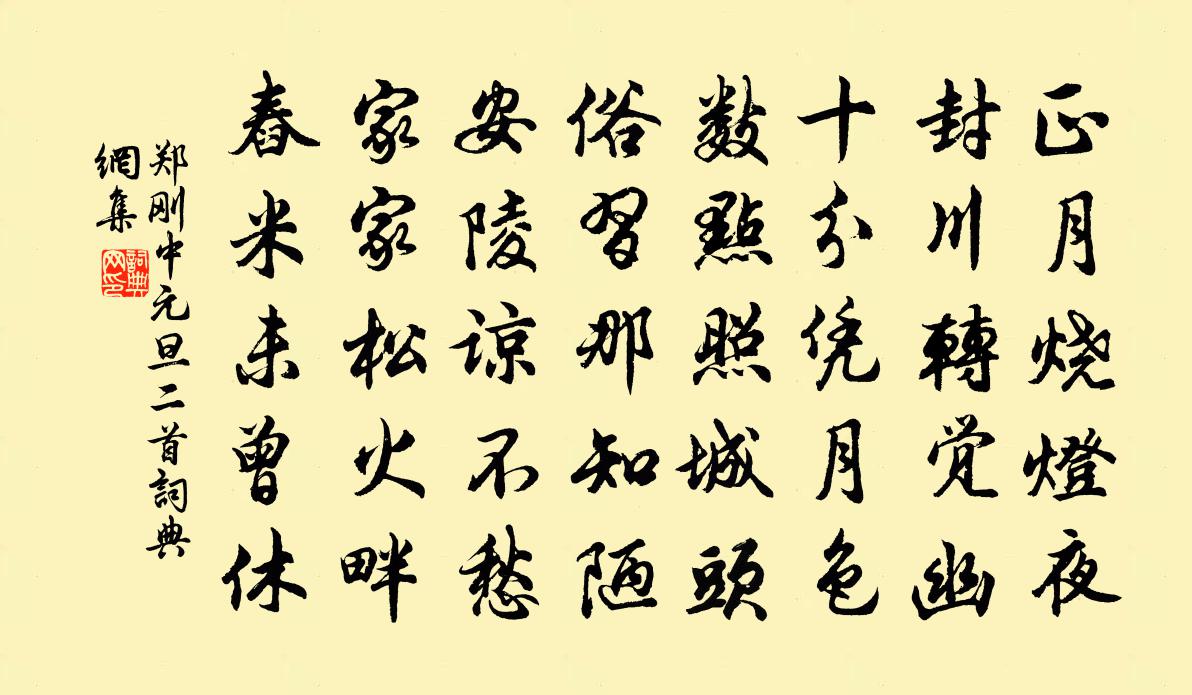 正月烧燈夜
封川轉觉幽
十分凭月色
數點照城頭
俗習那知陋
安陵谅不愁
家家松火畔
舂米未曾休
郑刚中元旦二首詞典
網集
詞典
网印